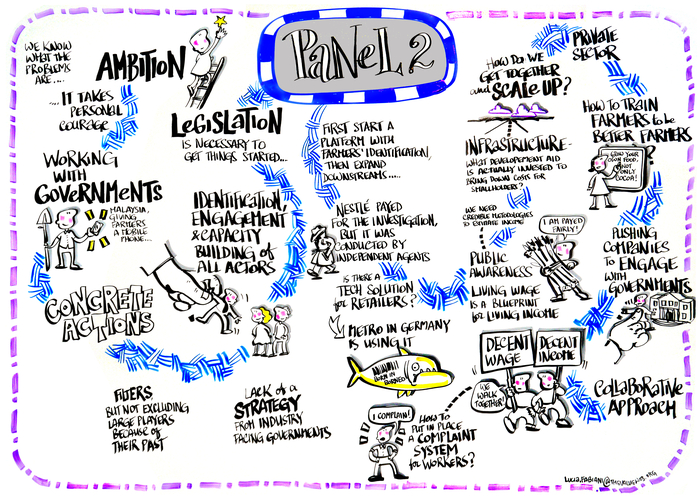 PANEL 2
WE KNOW
WHAT THE
PROBLEMS
ARE....
AMBITION
...IT TAKES
PERSONAL
COURAGE
WORKING
WITH
GOVERNMENTS
MALAYSIA,
GIVING
FARMERS
A MOBILE
PHONE...
CONCRETE
ACTIONS
LEGISLATION
IS NECESSARY TO
GET THINGS STARTED...
IDENTIFICATION,
ENGAGEMENT
& CAPACITY
BUILDING of
ALL ACTORS
FILTERS
BUT NOT EXCLUDING
LARGE PLAYERS
BECAUSE of
THEIR PAST
LACK of a
STRATEGY
FROM INDUSTRY
FACING GOVERNMENTS
FIRST START A
PLATFORM WITH
FARMERS' IDENTIFICATION,
THEN EXPAND
DOWNSTREAMS....
NESTLÉ PAYED
FOR THE INVESTIGATION,
BUT IT WAS
CONDUCTED BY
INDEPENDENT AGENTS
IS THERE A
TECH SOLUTION
for RETAILERS?
METRO IN GERMANY
IS USING IT
BORN IN
BORNEO
I COMPLAIN!
HOW TO
PUT IN PLACE
A COMPLAINT
SYSTEM
for WORKERS?
HOW DO WE
GET TOGETHER
and SCALE UP?
INFRASTRUCTURE-
WHAT DEVELOPMENT AID
IS ACTUALLY INVESTED TO
BRING DOWN COSTS FOR
SMALLHOLDERS?
WE NEED
CREDIBLE METHODOLOGIES
TO ESTIMATE INCOME
I AM PAYED
FAIRLY!
PUBLIC
AWARENESS
LIVING WAGE
IS A BLUEPRINT
for LIVING INCOME
DECENT
WAGE
DECENT
INCOME
WE
WALK
TOGETHER!
PRIVATE
SECTOR
HOW TO TRAIN
FARMERS to be
BETTER FARMERS
?
GROW YOUR
OWN FOOD,
NOT
ONLY
COCOA!
PUSHING
COMPANIES
to ENGAGE
WITH
GOVERNMENTS
COLLABORATIVE
APPROACH